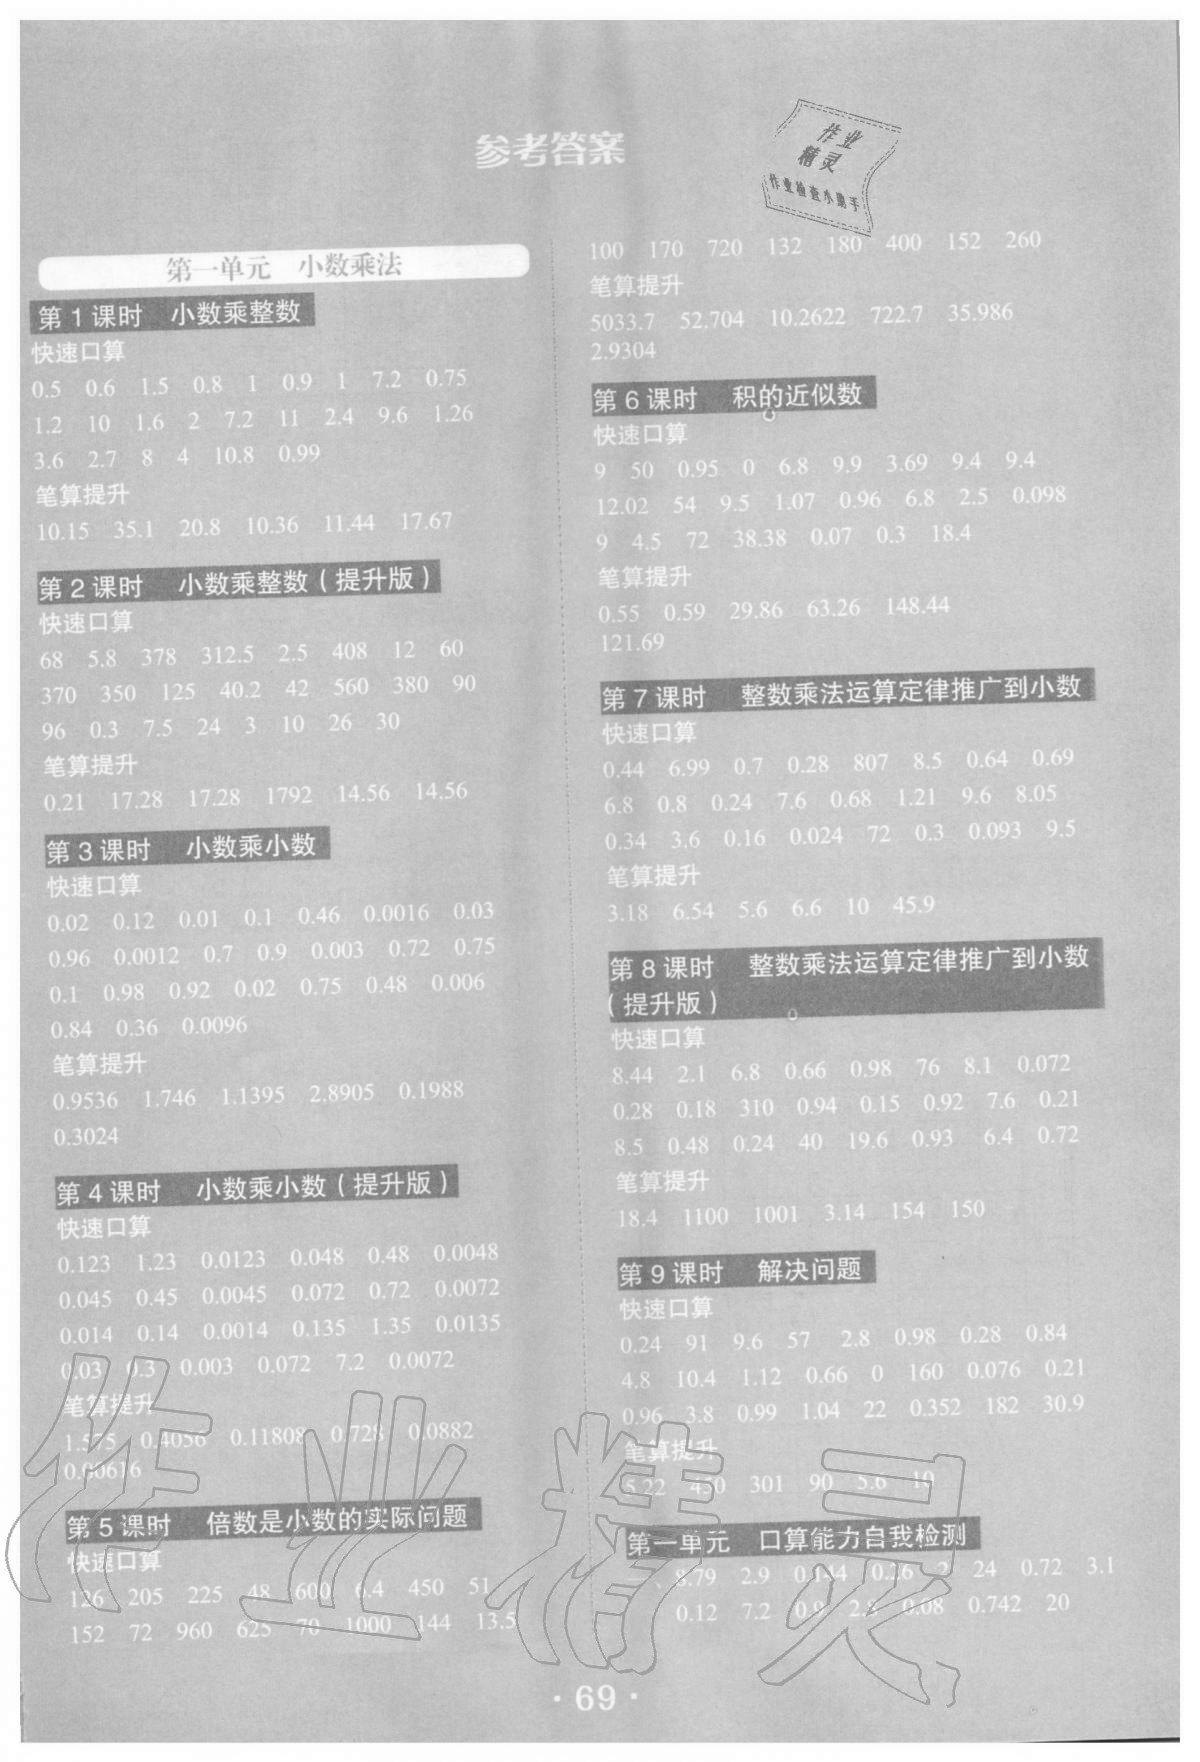 参考答案
作业
精灵
作业检查小助手
第一单元 小数乘法
第1课时 小数乘整数
快速口算
0.5 0.6 1.5 0.8 1 0.9 1 7.2 0.75
1.2 10 1.6 2 7.2 11 2.4 9.6 1.26
3.6 2.7 8 4 10.8 0.99
笔算提升
10.15 35.1 20.8 10.36 11.44 17.67
第2课时 小数乘整数(提升版)
快速口算
68 5.8 378 312.5 2.5 408 12 60
370 350 125 40.2 42 560 380 90
96 0.3 7.5 24 3 10 26 30
笔算提升
0.21 17.28 17.28 1792 14.56 14.56
第3课时 小数乘小数
快速口算
0.02 0.12 0.01 0.1 0.46 0.0016 0.03
0.96 0.0012 0.7 0.9 0.003 0.72 0.75
0.1 0.98 0.92 0.02 0.75 0.48 0.006
0.84 0.36 0.0096
笔算提升
0.9536 1.746 1.1395 2.8905 0.1988
0.3024
第4课时 小数乘小数(提升版)
快速口算
0.123 1.23 0.0123 0.048 0.48 0.0048
0.045 0.45 0.0045 0.072 0.72 0.0072
0.014 0.14 0.0014 0.135 1.35 0.0135
0.03 0.3 0.003 0.072 7.2 0.0072
笔算提升
1.575 0.4056 0.11808 0.728 0.0882
0.00616
第5课时 倍数是小数的实际问题
快速口算
126 205 225 48 600 6.4 450 51
152 72 960 625 70 1000 144 13.5
100 170 720 132 180 400 152 260
笔算提升
5033.7 52.704 10.2622 722.7 35.986
2.9304
第6课时 积的近似数
快速口算
9 50 0.95 0 6.8 9.9 3.69 9.4 9.4
12.02 54 9.5 1.07 0.96 6.8 2.5 0.098
9 4.5 72 38.38 0.07 0.3 18.4
笔算提升
0.55 0.59 29.86 63.26 148.44
121.69
第7课时 整数乘法运算定律推广到小数
快速口算
0.44 6.99 0.7 0.28 807 8.5 0.64 0.69
6.8 0.8 0.24 7.6 0.68 1.21 9.6 8.05
0.34 3.6 0.16 0.024 72 0.3 0.093 9.5
笔算提升
3.18 6.54 5.6 6.6 10 45.9
第8课时 整数乘法运算定律推广到小数
(提升版)
快速口算
8.44 2.1 6.8 0.66 0.98 76 8.1 0.072
0.28 0.18 310 0.94 0.15 0.92 7.6 0.21
8.5 0.48 0.24 40 19.6 0.93 6.4 0.72
笔算提升
18.4 1100 1001 3.14 154 150
第9课时 解决问题
快速口算
0.24 91 9.6 57 2.8 0.98 0.28 0.84
4.8 10.4 1.12 0.66 0 160 0.076 0.21
0.96 3.8 0.99 1.04 22 0.352 182 30.9
笔算提升
5.22 450 301 90 5.6 10
第一单元 口算能力自我检测
8.79 2.9 0.144 0.26 2 24 0.72 3.1
0.12 7.2 0.9 2.8 0.08 0.742 20
作业精灵
·69·